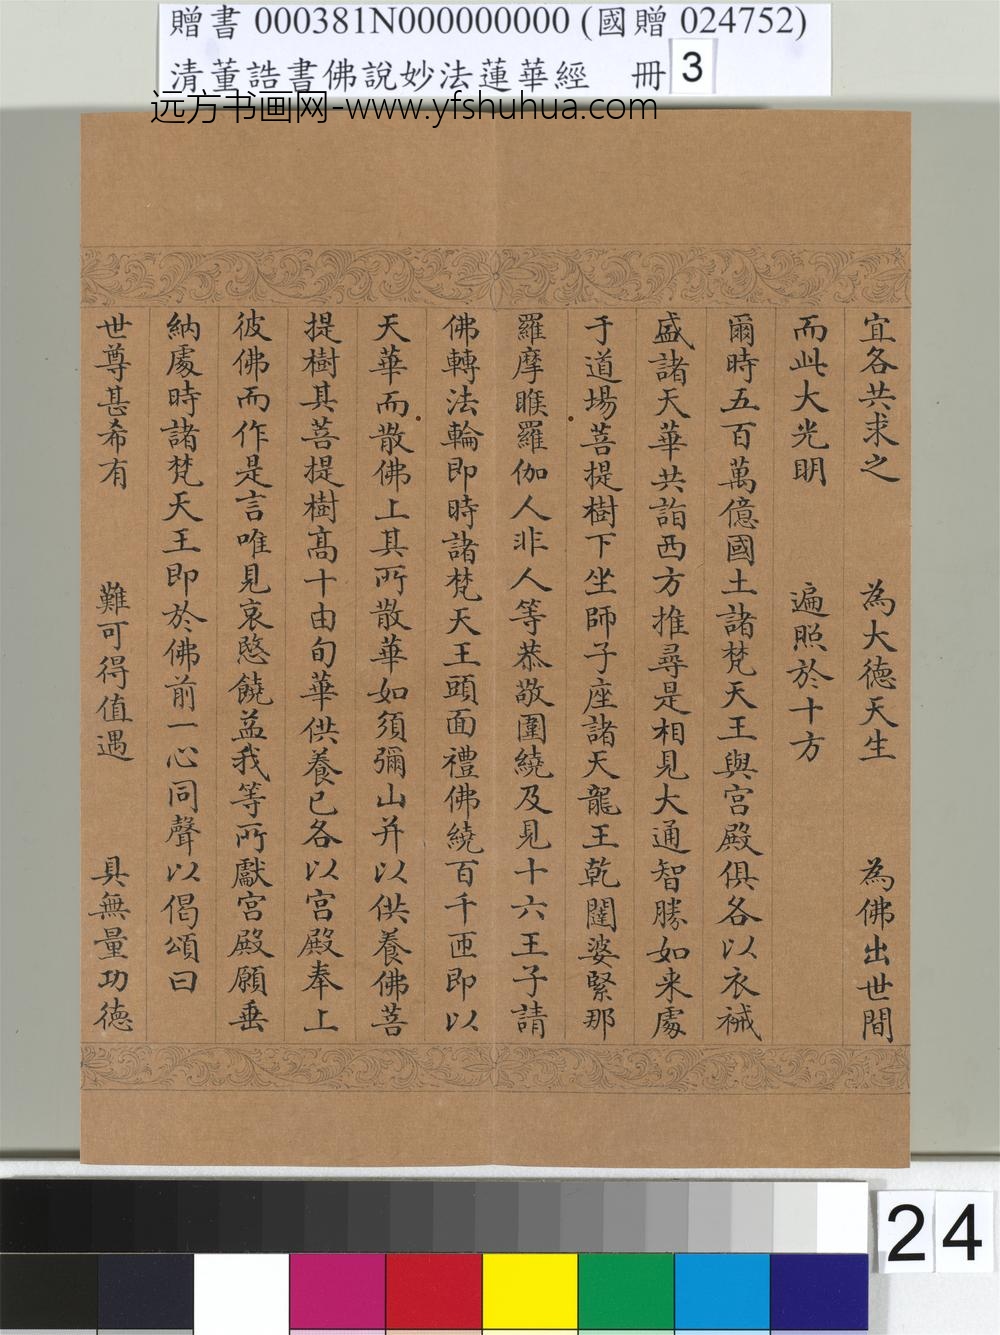 贈書 000381N000000000 (國贈 024752)
清董誥書佛說妙法蓮華經 冊 3
远方书画网-www.yfshuhua.com
宜各共求之 為大德天生 為佛出世間
而此大光明 遍照於十方
爾時五百萬億國土諸梵天王與宮殿俱各以衣祴
盛諸天華共詣西方推尋是相見大通智勝如来處
于道場菩提樹下坐師子座諸天龍王乾闥婆緊那
羅摩睺羅伽人非人等恭敬圍繞及見十六王子請
佛轉法輪即時諸梵天王頭面禮佛繞百千匝即以
天華而散佛上其所散華如須彌山并以供養佛菩
提樹其菩提樹高十由旬華供養已各以宮殿奉上
彼佛而作是言唯見哀愍饒益我等所獻宮殿願垂
納處時諸梵天王即於佛前一心同聲以偈頌曰
世尊甚希有 難可得值遇 具無量功德
24